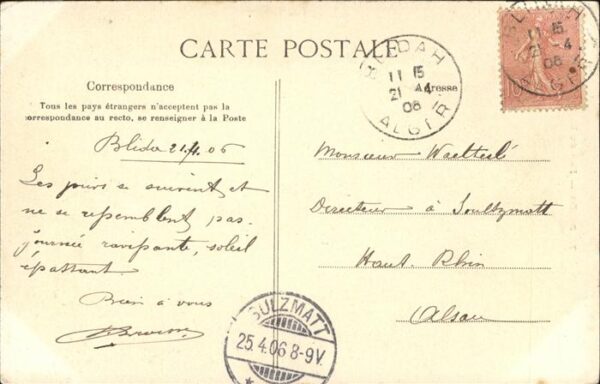 CARTE POSTALE
Correspondance
Tous les pays étrangers n'acceptent pas la
correspondance au recto, se renseigner à la Poste
Adresse
BLIDAH
11 15
21 4
06
ALGER
BLIDAH
11 15
21 4
06
ALGER
Blida 21.4.06
Les jours se suivent et
ne se ressemblent pas.
journée ravissante, soleil
épattant
Bien à vous
Monsieur
Directeur à Soultzmatt
Haut-Rhin
Alsace
SULZMATT
25.4.06 8-9V.